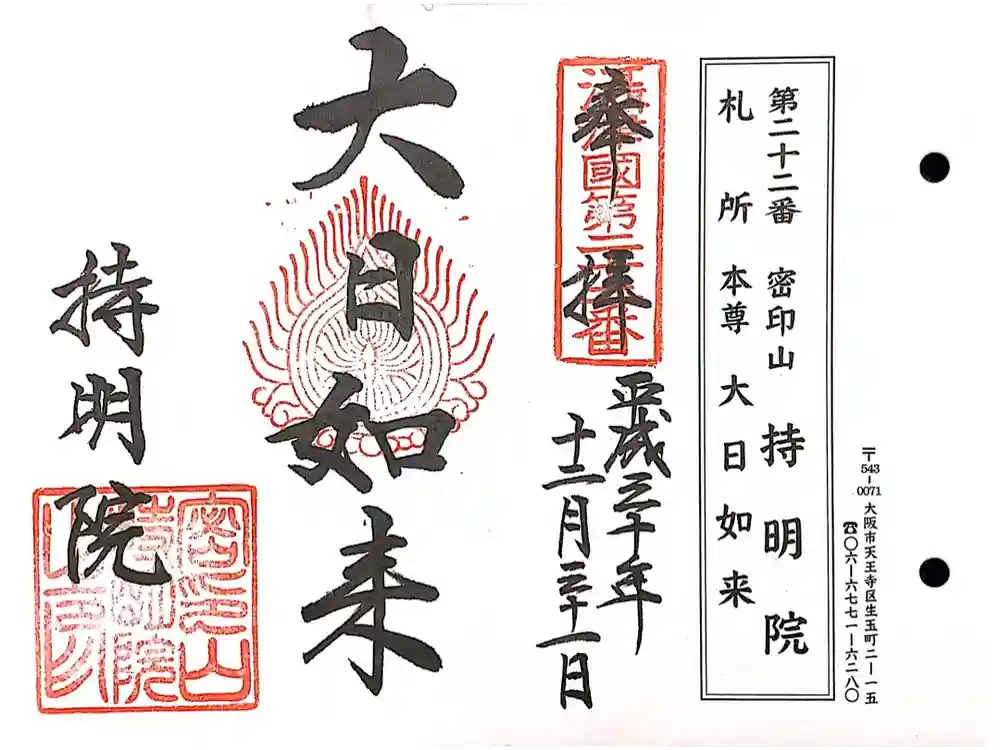 第二十二番 密印山 持明院
札所 本尊 大日如来
〒543-0071 大阪市天王寺区生玉町二ー一五
☎〇六ー六七七一ー六二八〇
奉拝
國第二十二番
平成三十年
十二月三十一日
大日如来
持明院
密印山
持明院